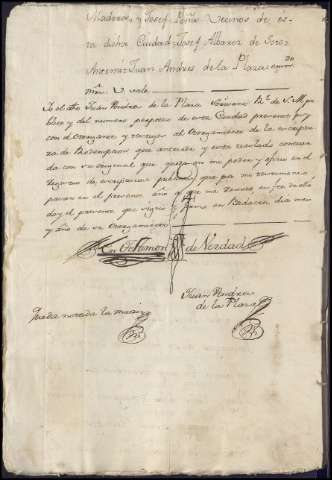 Madrid, y Josef Peña Vecinos de es-
ta dicha Ciudad = Josef Albarez de Perez
Antemi: Juan Andres de la Plaza =
Yo el dho Juan Andres de la Plaza Escrivano de S. M. pu-
blico y del numero perpetuo de esta Ciudad presente fuy
con el otorgante y testigos al otorgamiento de la escriptura
de que antecede y este traslado concuer-
da con su original que queda en mi poder y oficio en el
registro de escripturas publicas que por mi testimonio
pasan en el presente año a que me remito en fe de ello
doy el presente que signo y firmo en dia mes
y año de su otorgamiento
En testimonio de Verdad
Juan Andres
de la Plaza
Queda notada la